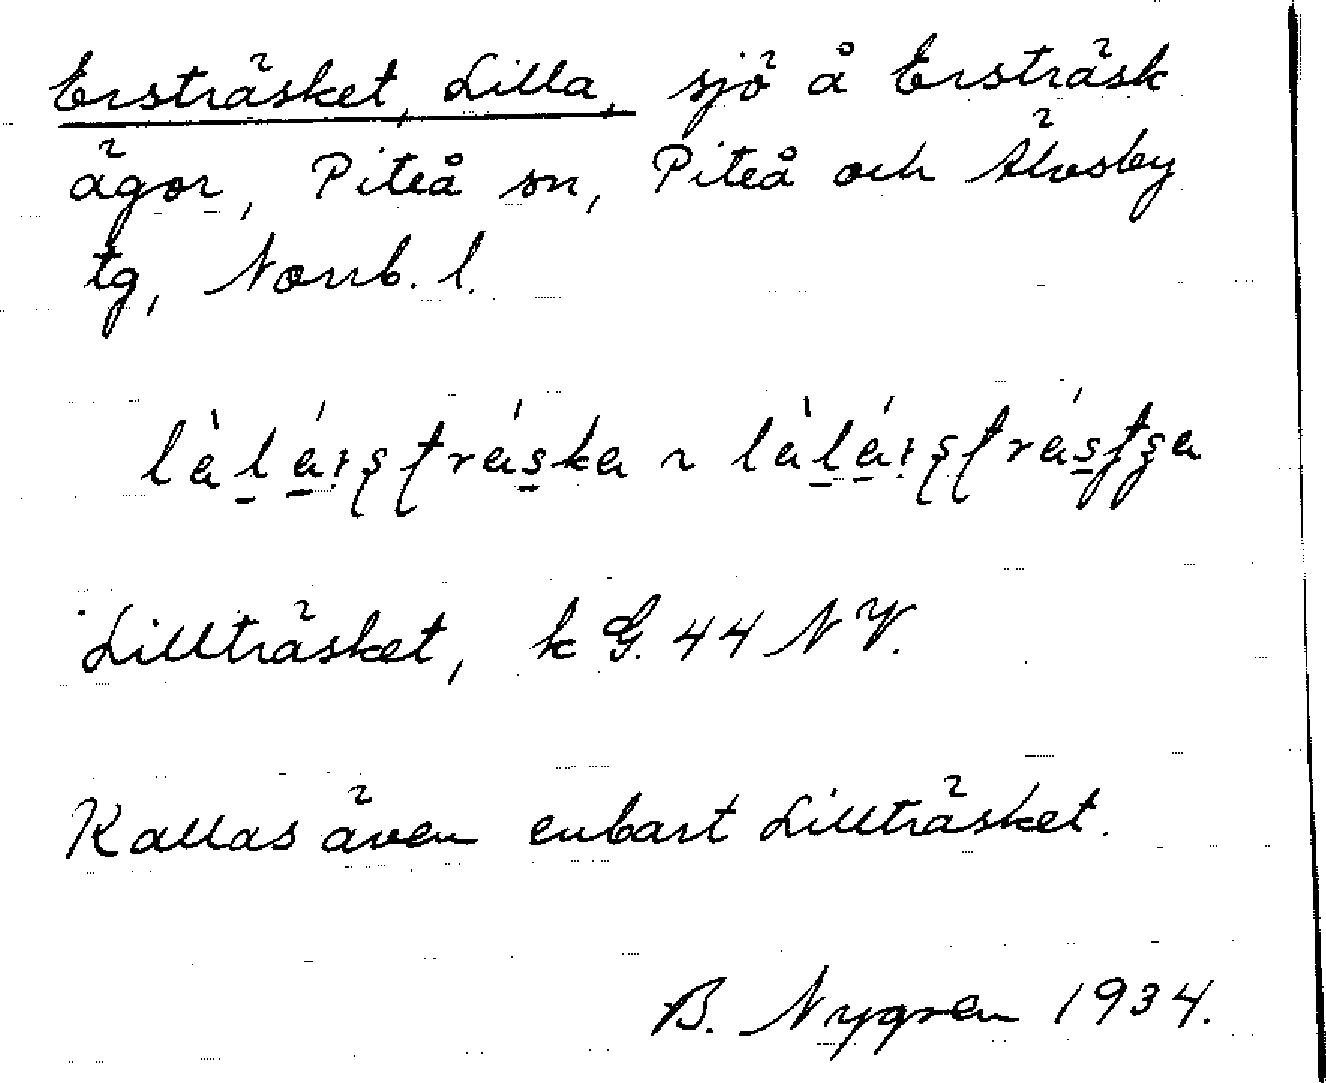 Ersträsket, Lilla, sjö å Ersträsk
ägor, Piteå sn, Piteå och Älvsby
tg, Norrb. l.
Lillträsket, k G. 44 NV.
Kallas även enbart Lillträsket.
B. Nygren 1934.